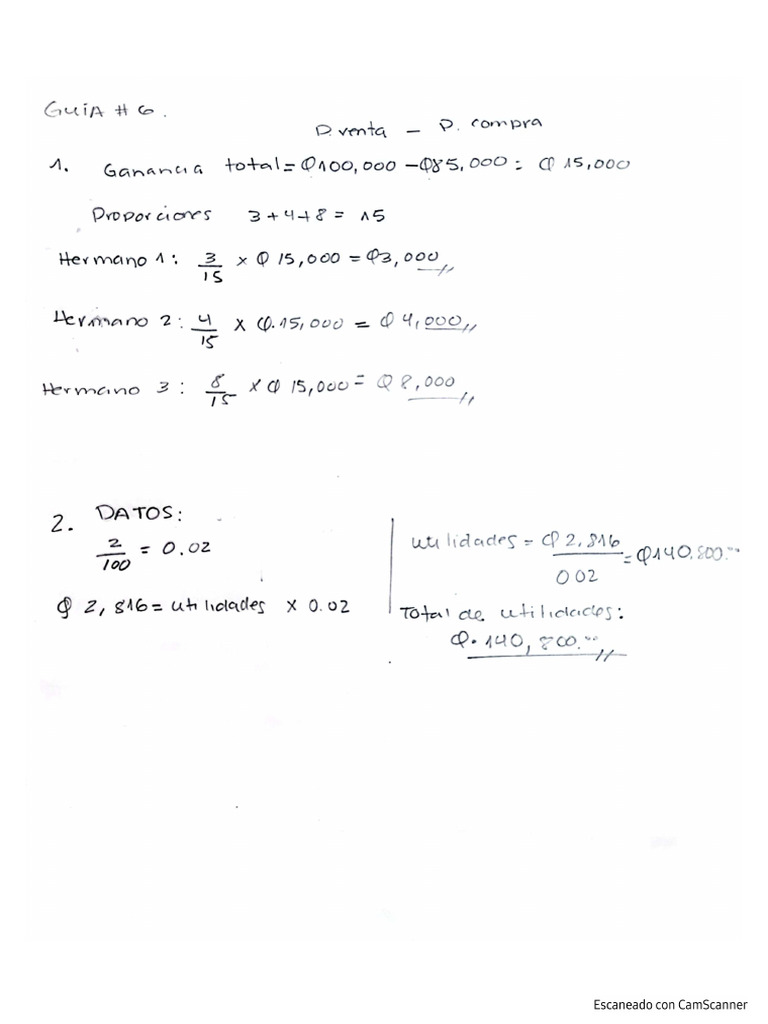 GUIA # 6.
P. venta - P. compra
1. Ganancia total = Q100,000 - Q85,000 = Q 15,000
Proporciones 3+4+8 = 15
Hermano 1: 3/15 x Q 15,000 = Q3,000
Hermano 2: 4/15 x Q.15,000 = Q 4,000
Hermano 3: 8/15 x Q 15,000 = Q 8,000
2. DATOS:
2/100 = 0.02
Q 2,816 = utilidades x 0.02
utilidades = Q 2,816/002 = Q140,800.00
Total de utilidades:
Q. 140,800.00
Escaneado con CamScanner